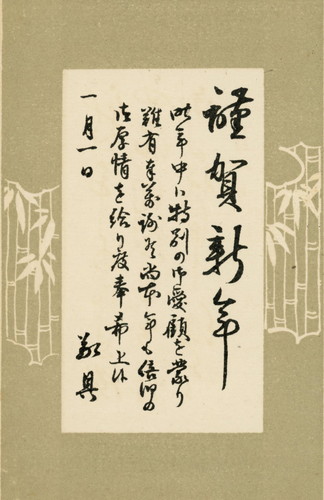 謹賀新年
昨年中ハ特別の御愛顧を蒙り
難有奉万謝候尚本年も倍旧の
御厚情を給り度奉希上候
敬具
一月一日